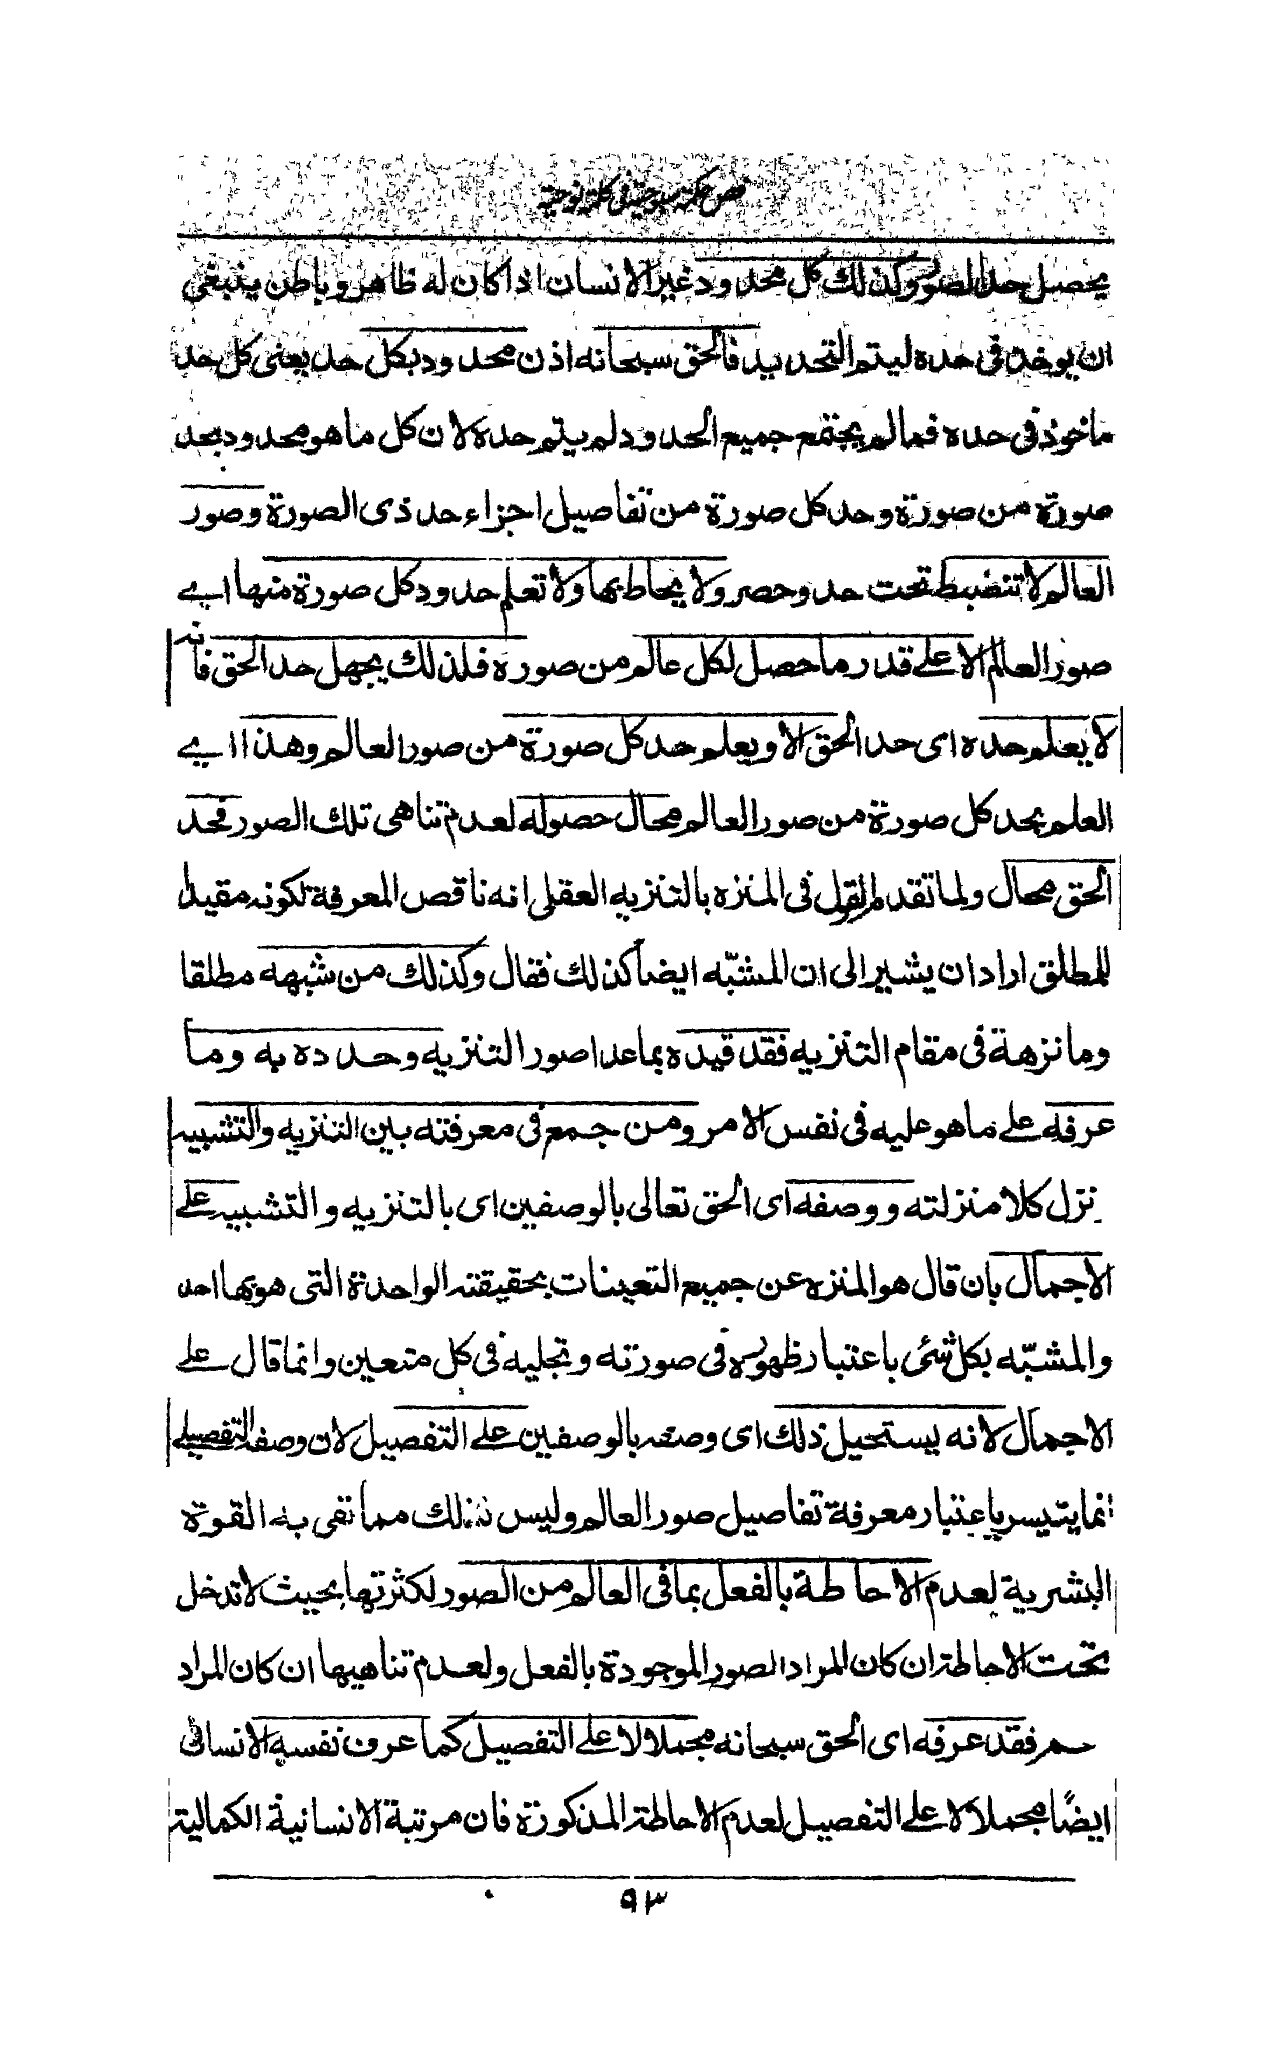 فص حكمة سبوحية فى كلمة نوحية
يحصل حد الصور وكذلك كل محدود غير الانسان اذا كان له ظاهر و باطن ينبغى
ان يوخذ فى حده ليتم التحديد فالحق سبحانه اذن محدود بكل حد يعنى كل حد
ماخوذ فى حده فما لم يجتمع جميع الحدود لم يتم حده لان كل ما هو محدود بحد
صورة من صورة وحد كل صورة من تفاصيل اجزاء حد ذى الصورة وصور
العالم لا تنضبط تحت حد وحصر ولا يحاط بها ولا تعلم حدود كل صورة منها اے
صور العالم الا علے قدر ما حصل لكل عالم من صورة فلذلك يجهل حد الحق فانه
لا يعلم حده اى حد الحق الا ويعلم حد كل صورة من صور العالم وهذا اے
العلم بحد كل صورة من صور العالم محال حصوله لعدم تناهى تلك الصور فحد
الحق محال ولما تقدم القول فى المنزه بالتنزيه العقلى انه ناقص المعرفة لكونه مقيدا
للمطلق اراد ان يشير الى ان المشبّه ايضا كذلك فقال وكذلك من شبهه مطلقا
وما نزهة فى مقام التنزيه فقد قيده بما عدا صور التنزيه وحدده به وما
عرفه علے ما هو عليه فى نفس الامر ومن جمع فى معرفته بين التنزيه والتشبيه
نزل كلا منزلته ووصفه اى الحق تعالى بالوصفين اى بالتنزيه والتشبيه علے
الاجمال بان قال هو المنزه عن جميع التعينات بحقيقته الواحدة التى هو بها احد
والمشبّه بكل شئى باعتبار ظهوره فى صورته وتجليه فى كل متعين وانما قال علے
الاجمال لانه يستحيل ذلك اى وصفه بالوصفين علے التفصيل لان وصفه التفصيلے
انما يتيسر باعتبار معرفة تفاصيل صور العالم وليس ذلك مما تفى به القوة
البشرية لعدم الاحاطة بالفعل بما فى العالم من الصور لكثرتها بحيث لا تدخل
تحت الاحاطة ان كان المراد الصور الموجودة بالفعل ولعدم تناهيها ان كان المراد
فقد عرفه اى الحق سبحانه مجملا لا علے التفصيل كما عرف نفسه الانسانى
ايضًا مجملا لا علے التفصيل لعدم الاحاطة المذكورة فان مرتبة الانسانية الكمالية
٩٣